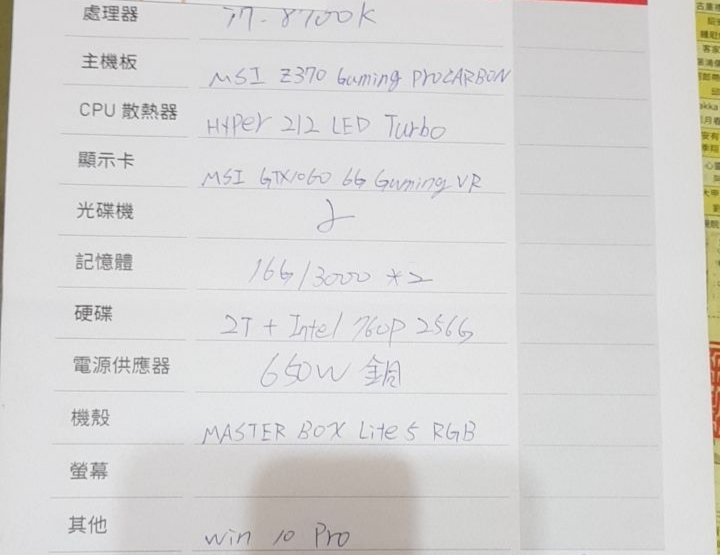 處理器 i7-8700K
主機板 MSI Z370 Gaming ProCARBON
CPU 散熱器 HyPer 212 LED Turbo
顯示卡 MSI GTX1060 6G Gaming VR
光碟機
記憶體 16G/3000 *2
硬碟 2T + Intel 760P 256G
電源供應器 650W 銅
機殼 MASTER BOX Lite 5 RGB
螢幕
其他 Win 10 Pro